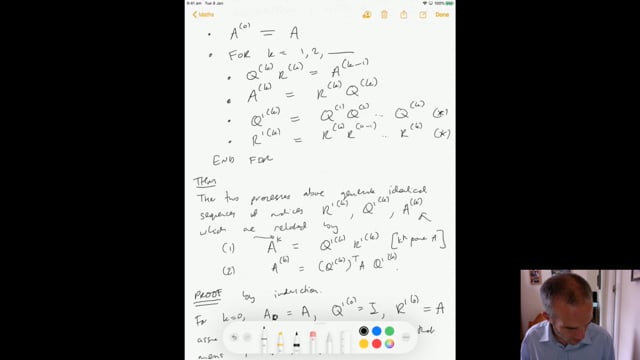 9:41 am Tue 9 Jan
Maths
Done
• A^(0) = A
• FOR k = 1, 2, ___
• Q^(k) R^(k) = A^(k-1)
• A^(k) = R^(k) Q^(k)
• Q'^(k) = Q^(1) Q^(2) ... Q^(k) (*)
• R'^(k) = R^(k) R^(k-1) ... R^(k) (*)
END FOR
Thm
The two processes above generate identical
sequences of matrices R'^(k), Q'^(k), A^(k)
which are related by
(1) A^k = Q'^(k) R'^(k) [k^th power A]
(2) A^(k) = (Q'^(k))^T A Q'^(k).
PROOF by induction.
For k=0, A_0 = A, Q'^(0) = I, R'^(0) = A
that